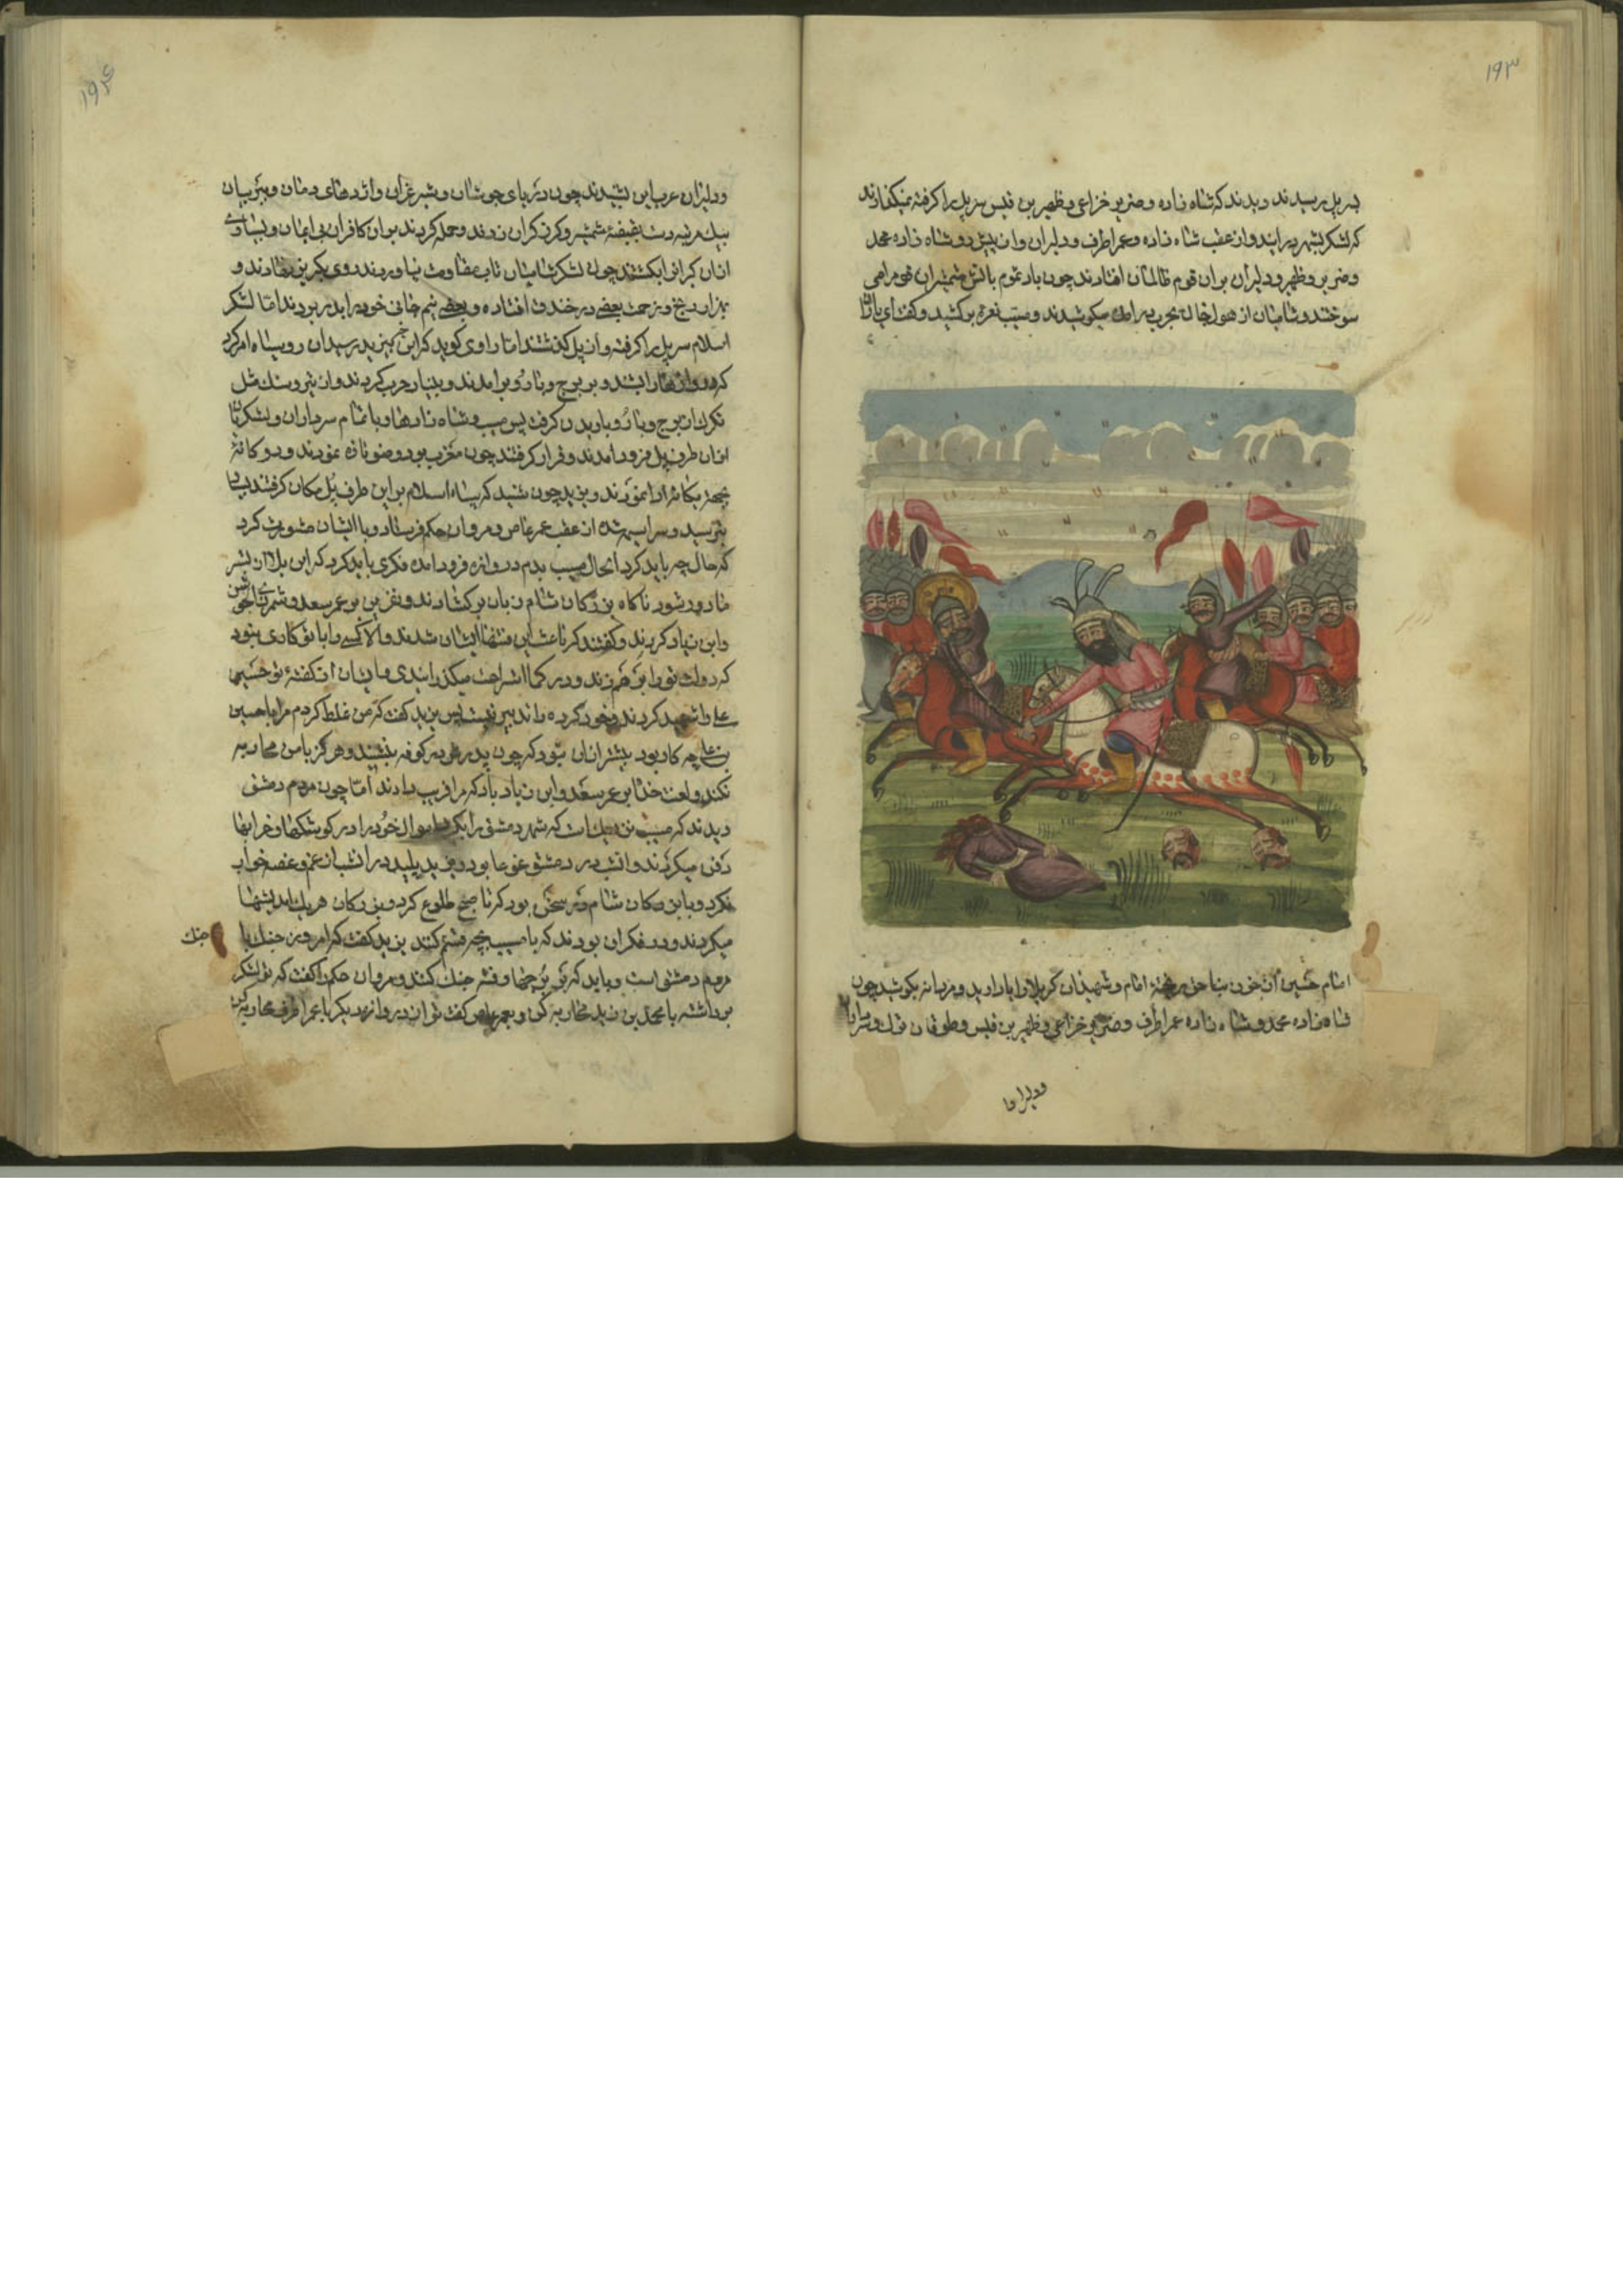 ۱۹۳
بسر پل رسیدند دیدند که شاه زاده و ضریر خزاعی و ظهیر بن قیس سر پل را کرفته نمیکذارند
که لشکر بشهر درایند و از عقب شاه زاده و عمر اطرف و دلیران و از پیش رو شاه زاده محمد
و ضریر و ظهیر و دلیران بر ان قوم ظالمان افتادند چون باد سموم باتش شمشیران قوم را می
سوختند و شامیان از هول جان بحرب در امده میکوشیدند و مسیب نعره برکشید و کفت ای یاران
امام حسین از خون بناحق ریخته امام و شهیدان کربلا را یاد ارید و مردانه بکوشید چون
شاه زاده محمد و شاه زاده عمر اطرف و ضریر خزاعی و ظهیر بن قیس و طوغان ترک و
و دلیران
۱۹۴
و دلیران عرب این بشنیدند چون دریای جوشان و شیر غران و اژدهای دمان و ببر بیان
بیک مرتبه دست بقبضه شمشیر و کرز کران زدند و حمله کردند بر ان کافران بی ایمان و بسیاری
از ان کبران بکشتند چون لشکر شامیان تاب مقاومت نیاوردند روی بکریز نهادند و
بهزار رنج و زحمت بعضی در خندق افتاده و بعضی نیم جانی خود را بدر بردند اما لشکر
اسلام سر پل را کرفته و از پل کذشتند اما راوی کوید که این خبر بیزید رسید ان روسیاه امر کرد
که دروازها را بستند و بر برج و بارو برامدند و بنیاد حرب کردند و از تیر و سنک مثل
تکرک از برج و بارو باریدن کرفت پس مسیب و شاه زادها و با تمام سرداران و لشکریان
از ان طرف پل فرود امدند و قرار کرفتند چون مغرب بود وضو تازه نمودند و دو کانه
بجهة یکانه ادا نمودند و یزید چون شنید که سپاه اسلام بر این طرف پل مکان کرفتند بسیار
بترسید و سراسیمه شده از عقب عمر عاص و مروان حکم فرستاد و با ایشان مشورت کرد
که حال چه باید کرد الحال مسیب بدم دروازه فرود امده فکری باید کرد که این بلا از سر
ما دور شود ناکاه بزرکان شام زبان برکشادند و نفرین بر عمر سعد و شمر ذی الجوشن
و ابن زیاد کردند و کفتند که باعث این فتنها ایشان شدند و الا کسی را با تو کاری نبود
که دولت تو را بر هم زدند و در کمال استراحت میکذرانیدی و ایشان از کفته تو حسین
علی را شهید کردند و خود کرده را تدبیر نیست پس یزید کفت که من غلط کردم مرا با حسین
بن علی چه کار بود بیشتر از ان نبود که چون پدرش در کوفه بنشیند و هرکز با من محاربه
نکند و لعنت خدا بر عمر سعد و ابن زیاد باد که مرا فریب دادند اما چون مردم دمشق
دیدند که مسیب نزدیک است که شهر دمشق را بکیرد اموال خود را در کوشکها و خرابها
دفن میکردند و انشب در دمشق غوغا بود و یزید پلید در انشب از غم و غصه خواب
نکرد و با بزرکان شام در سخن بود که تا صبح طلوع کرد و بزرکان هر یک اندیشها
میکردند و در فکر ان بودند که با مسیب بچه قسم کنند یزید کفت که امروز جنک با
جنک
مردم دمشق است و باید که بر برجها رفته جنک کنند و مروان حکم را کفت که تو لشکر
برداشته با محمد بن زید محاربه کن و بعمر عاص کفت تو از دروازه دیکر با عمر اطرف محاربه کن